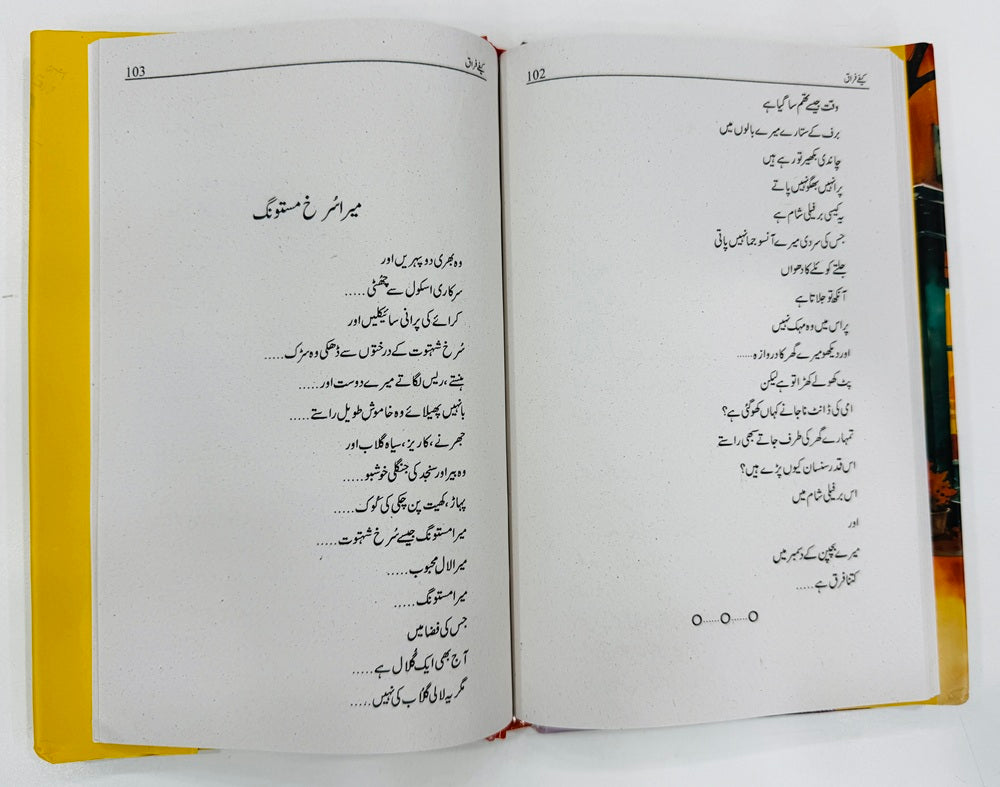 کیفے فراق 102
وقت جیسے تھم سا گیا ہے
برف کے ستارے میرے بالوں میں
چاندی بکھیر تو رہے ہیں
پر انہیں بھگو نہیں پاتے
یہ کیسی برفیلی شام ہے
جس کی سردی میرے آنسو جما نہیں پاتی
جلتے کوئلے کا دھواں
آنکھ تو جلاتا ہے
پر اس میں وہ مہک نہیں
اور دیکھو میرے گھر کا دروازہ......
پٹ کھولے کھڑا تو ہے لیکن
امی کی ڈانٹ نا جانے کہاں کھو گئی ہے؟
تمہارے گھر کی طرف جاتے سبھی راستے
اس قدر سنسان کیوں پڑے ہیں؟
اس برفیلی شام میں
اور
میرے بچپن کے دسمبر میں
کتنا فرق ہے.....
کیفے فراق 103
میرا سُرخ مستونگ
وہ بھری دوپہریں اور
سرکاری اسکول سے چھٹی.....
کرائے کی پرانی سائیکلیں اور
سُرخ شہتوت کے درختوں سے ڈھکی وہ سڑک.....
ہنستے، ریس لگاتے میرے دوست اور.....
بانہیں پھیلائے وہ خاموش طویل راستے.....
جھرنے، کاریز، سیاہ گلاب اور
وہ بیر اور سنجد کی جنگلی خوشبو.....
پہاڑ، کھیت پن چکی کی کُوک.....
میرا مستونگ جیسے سُرخ شہتوت.....
میرا لال محبوب.....
میرا مستونگ.....
جس کی فضا میں
آج بھی ایک گُلال ہے.....
مگر یہ لالی گلاب کی نہیں.....